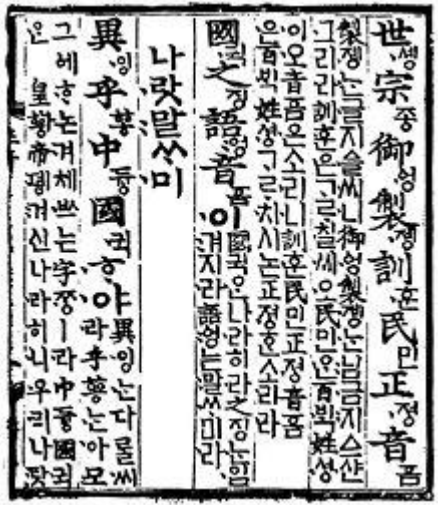 世솅宗종御ᅌᅥᆼ製졩訓훈民민正졍音ᅙᅳᆷ
製졩ᄂᆞᆫ글지ᅀᅳᆯ씨니御ᅌᅥᆼ製졩ᄂᆞᆫ님금지ᅀᅳ샨
그리라訓훈은ᄀᆞᄅᆞ칠씨오民민ᄋᆞᆫ百ᄇᆡᆨ姓셩
이오音ᅙᅳᆷ은소리니訓훈民민正졍音ᅙᅳᆷ
은百ᄇᆡᆨ姓셩ᄀᆞᄅᆞ치시논正졍ᄒᆞᆫ소리라
國귁之징語ᅌᅥᆼ音ᅙᅳᆷ이
國귁ᄋᆞᆫ나라히라之징ᄂᆞᆫ입
겨지라語ᅌᅥᆼ는말ᄊᆞ미라
나랏말ᄊᆞ미
異잉乎ᅘᅩᆼ中듀ᇰ國귁ᄒᆞ야
異잉ᄂᆞᆫ다ᄅᆞᆯ씨
라乎ᅘᅩᆼᄂᆞᆫ아모
그ᅌᅦᄒᆞ논겨체ᄡᅳ는字ᄍᆞᆼㅣ라中듀ᇰ國귁
ᄋᆞᆫ皇ᅘᅪᇰ帝뎽겨신나라히니우리나랏